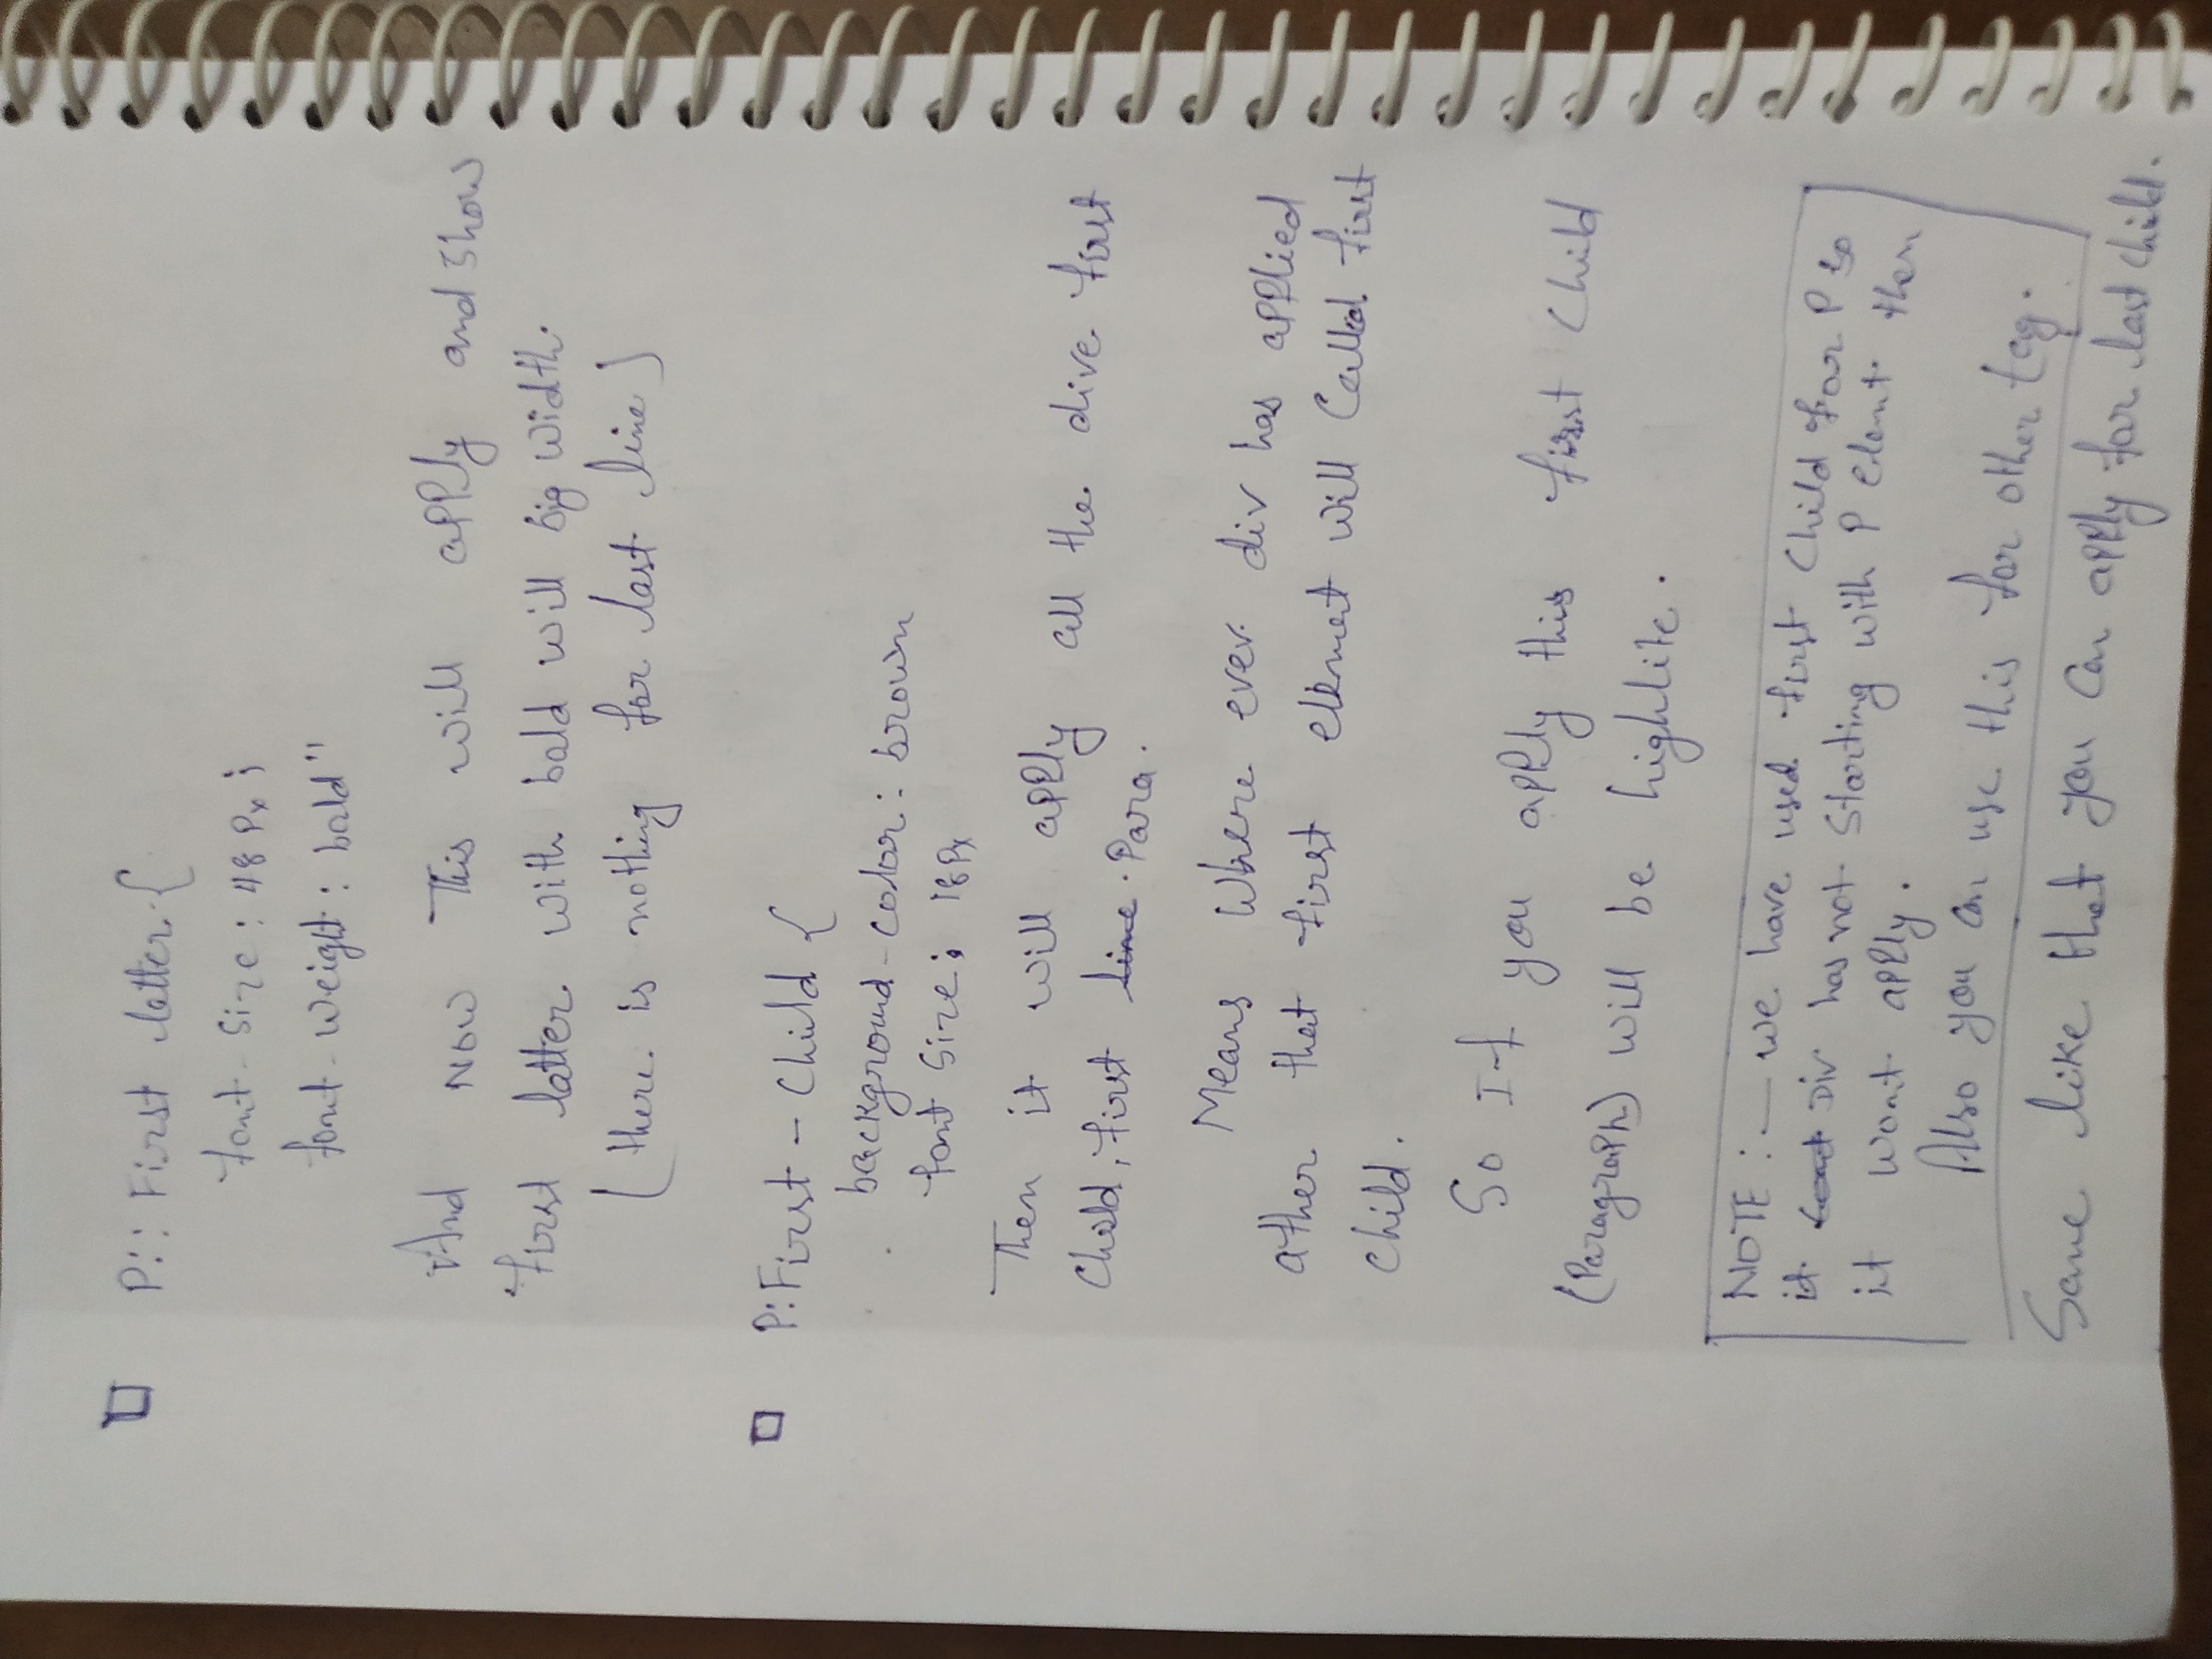 P:: First latter {
font-size: 48 Px;
font-weight: bald"
And Now This will apply and show
first latter with bald will big width.
(there is nothing for last line)
P:First-child {
background-color: brown
font size: 18Px
Then it will apply all the dive first
child, first line. Para.
Means where ever div has applied
after that first elemnet will called first
child.
So If you apply this first child
(Paragraph) will be highlite.
NOTE:- we have used first child for P so
it Div has not starting with P elemt then
it wont apply.
Also you can use this for other tag.
Same like that you can apply for last child.